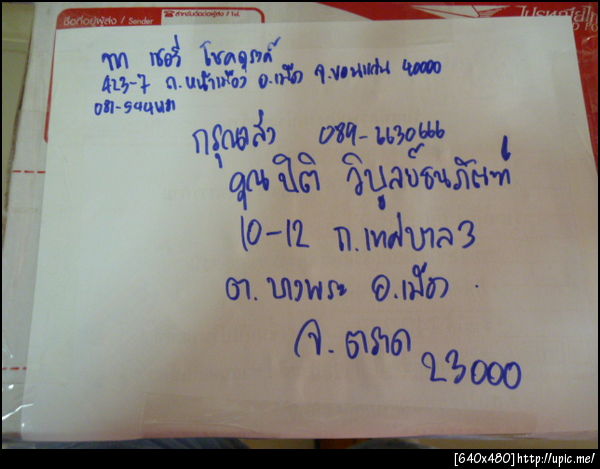 ชื่อที่อยู่ผู้ส่ง / Sender ☎สำหรับติดต่อผู้ส่ง / Tel.
ไปรษณีย์ไ
จาก เชอรี่ โชคดุรงค์
423-7 ถ.หน้าเมือง อ.เมือง จ.ขอนแก่น 40000
กรุณาส่ง 089-6630666
คุณปิติ วิบูลย์ธนภัณฑ์
10-12 ถ.เทศบาล 3
ต.บางพระ อ.เมือง
จ.ตราด
23000
[640x480]http://upic.me/